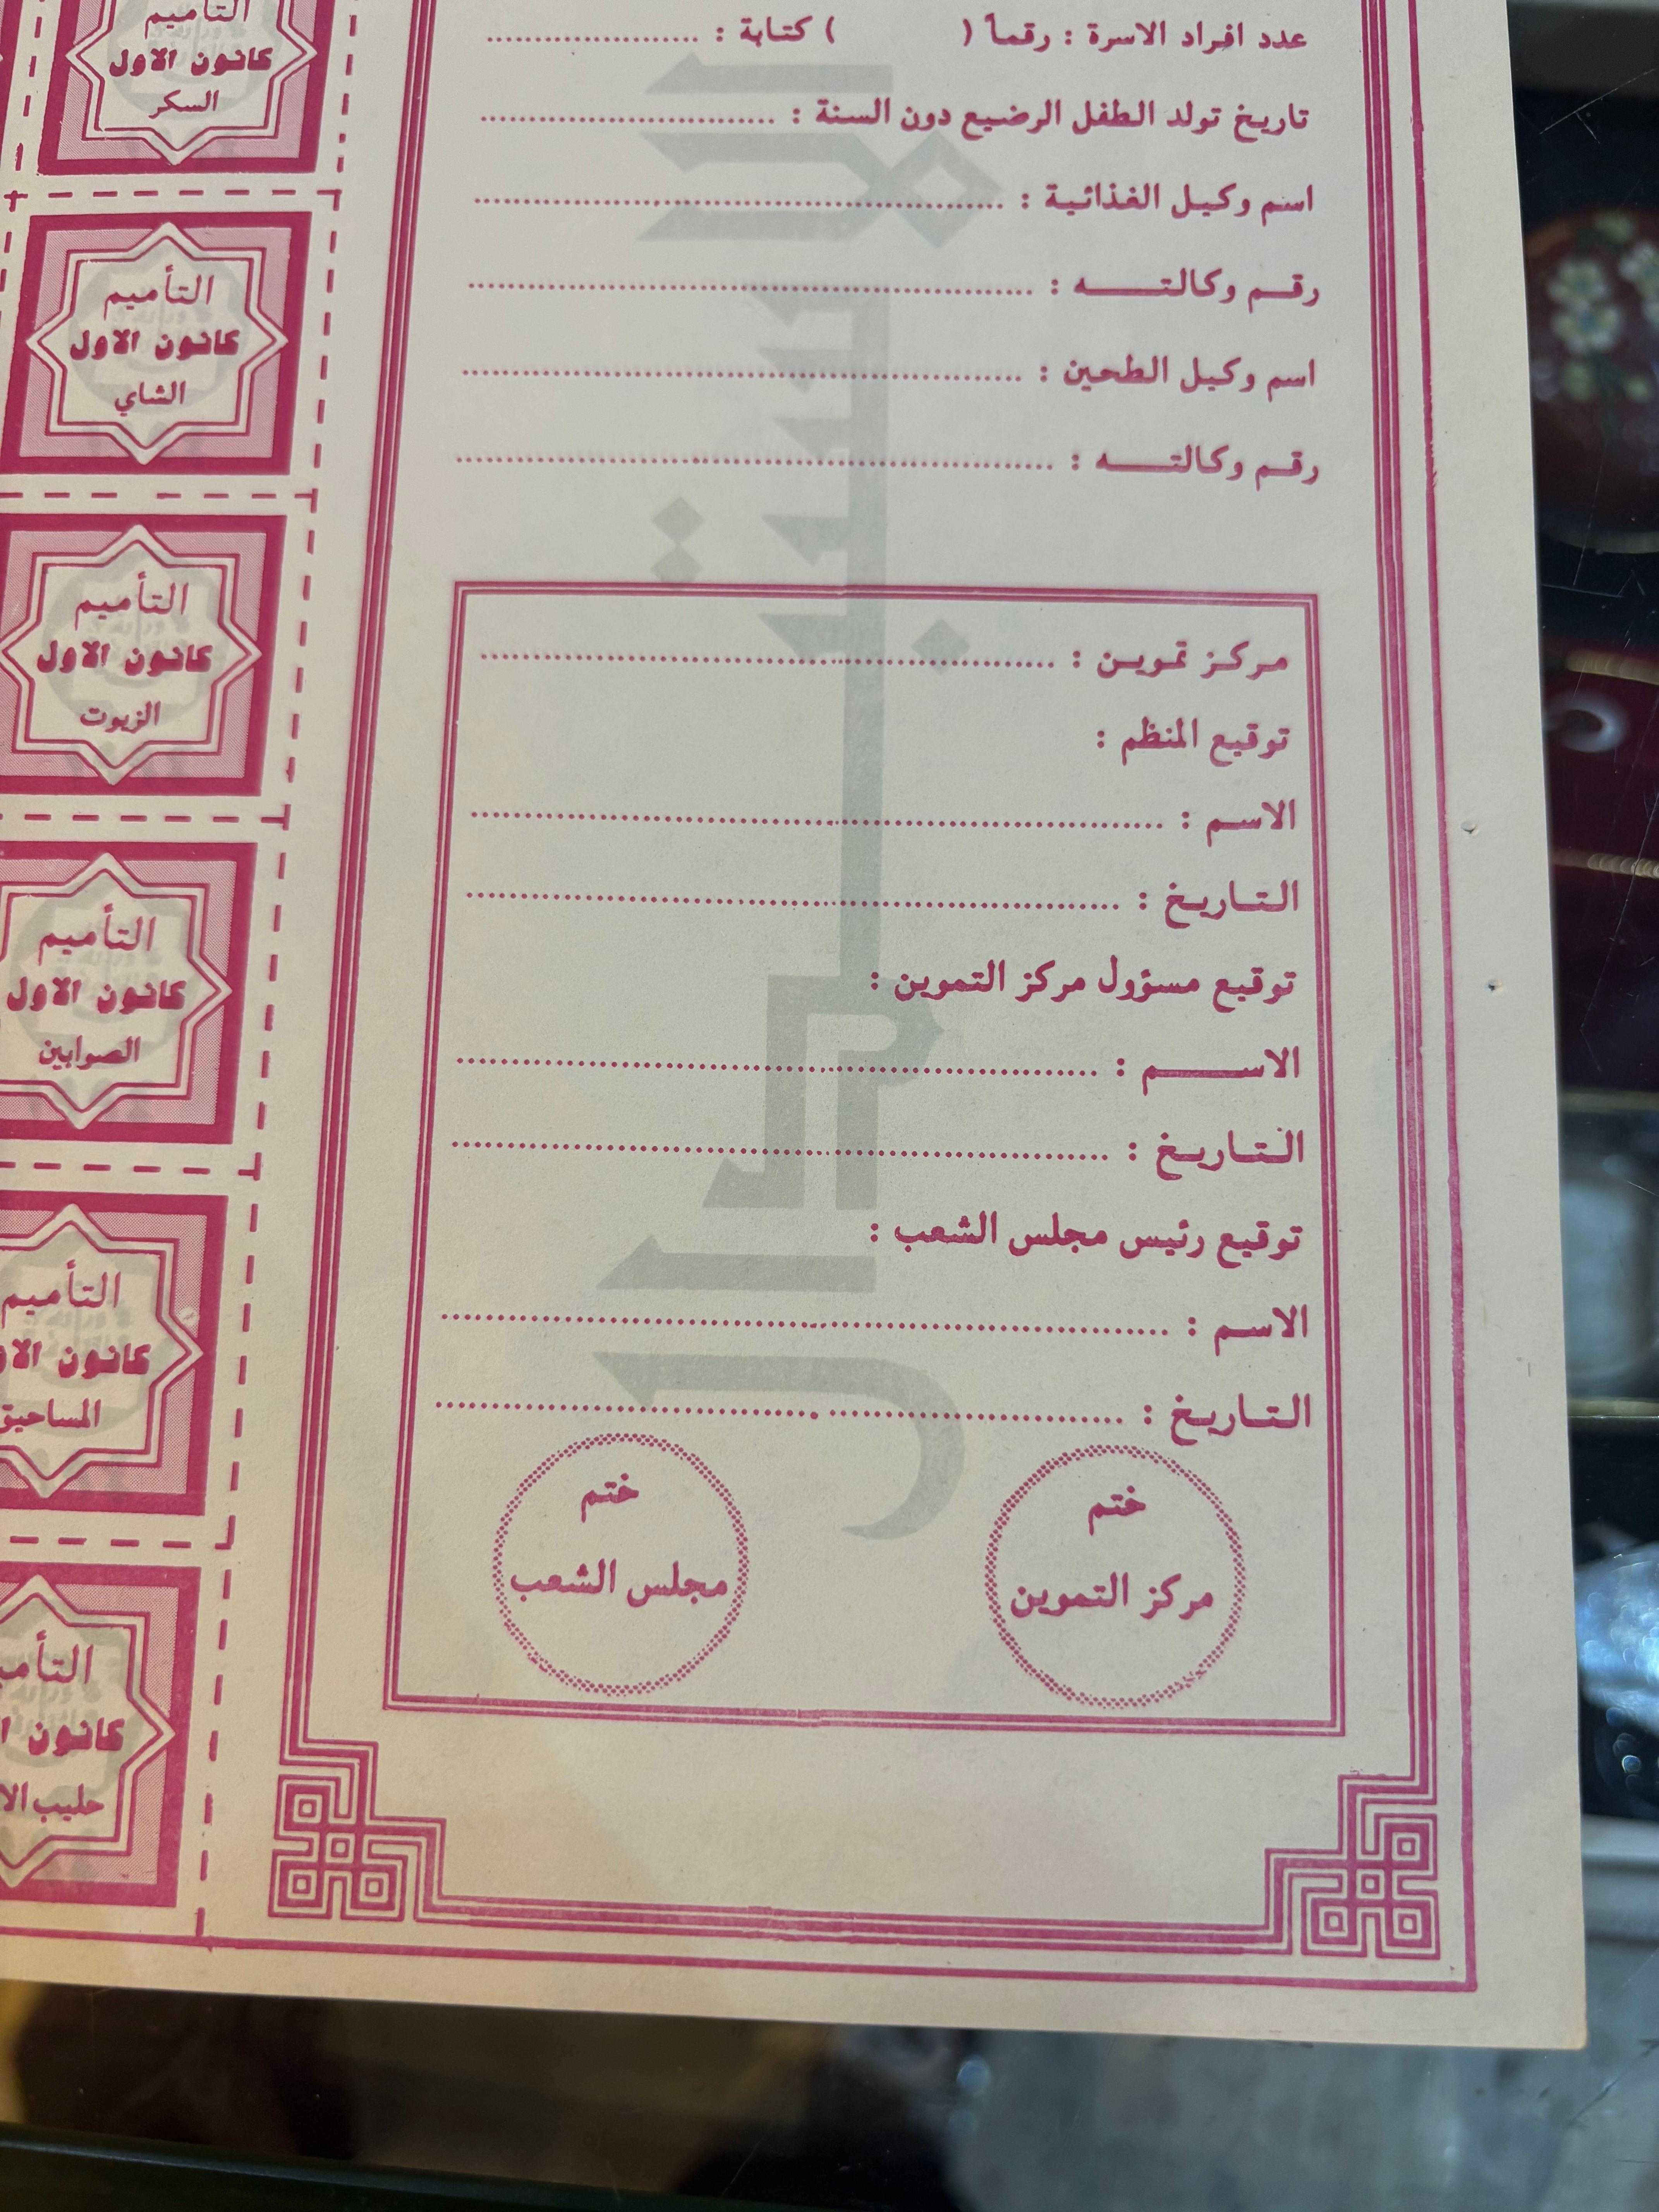 عدد افراد الاسرة : رقماً (          ) كتابة : ......................
تاريخ تولد الطفل الرضيع دون السنة : ..............................
اسم وكيل الغذائية : ......................................................
رقم وكالتـــه : ..........................................................
اسم وكيل الطحين : .........................................................
رقم وكالتـــه : .............................................................
مركز تموين : ...........................................................
توقيع المنظم :
الاسم : ......................................................................
التاريخ : ...................................................................
توقيع مسؤول مركز التموين :
الاســـم : ..................................................................
التاريخ : ...................................................................
توقيع رئيس مجلس الشعب :
الاسم : .........................................................................
التاريخ : ......................................................................
ختم
مركز التموين
ختم
مجلس الشعب
التأميم
كانون الاول
السكر
التأميم
كانون الاول
الشاي
التأميم
كانون الاول
الزيوت
التأميم
كانون الاول
الصوابين
التأميم
كانون الاول
المساحيق
كانون
حليب